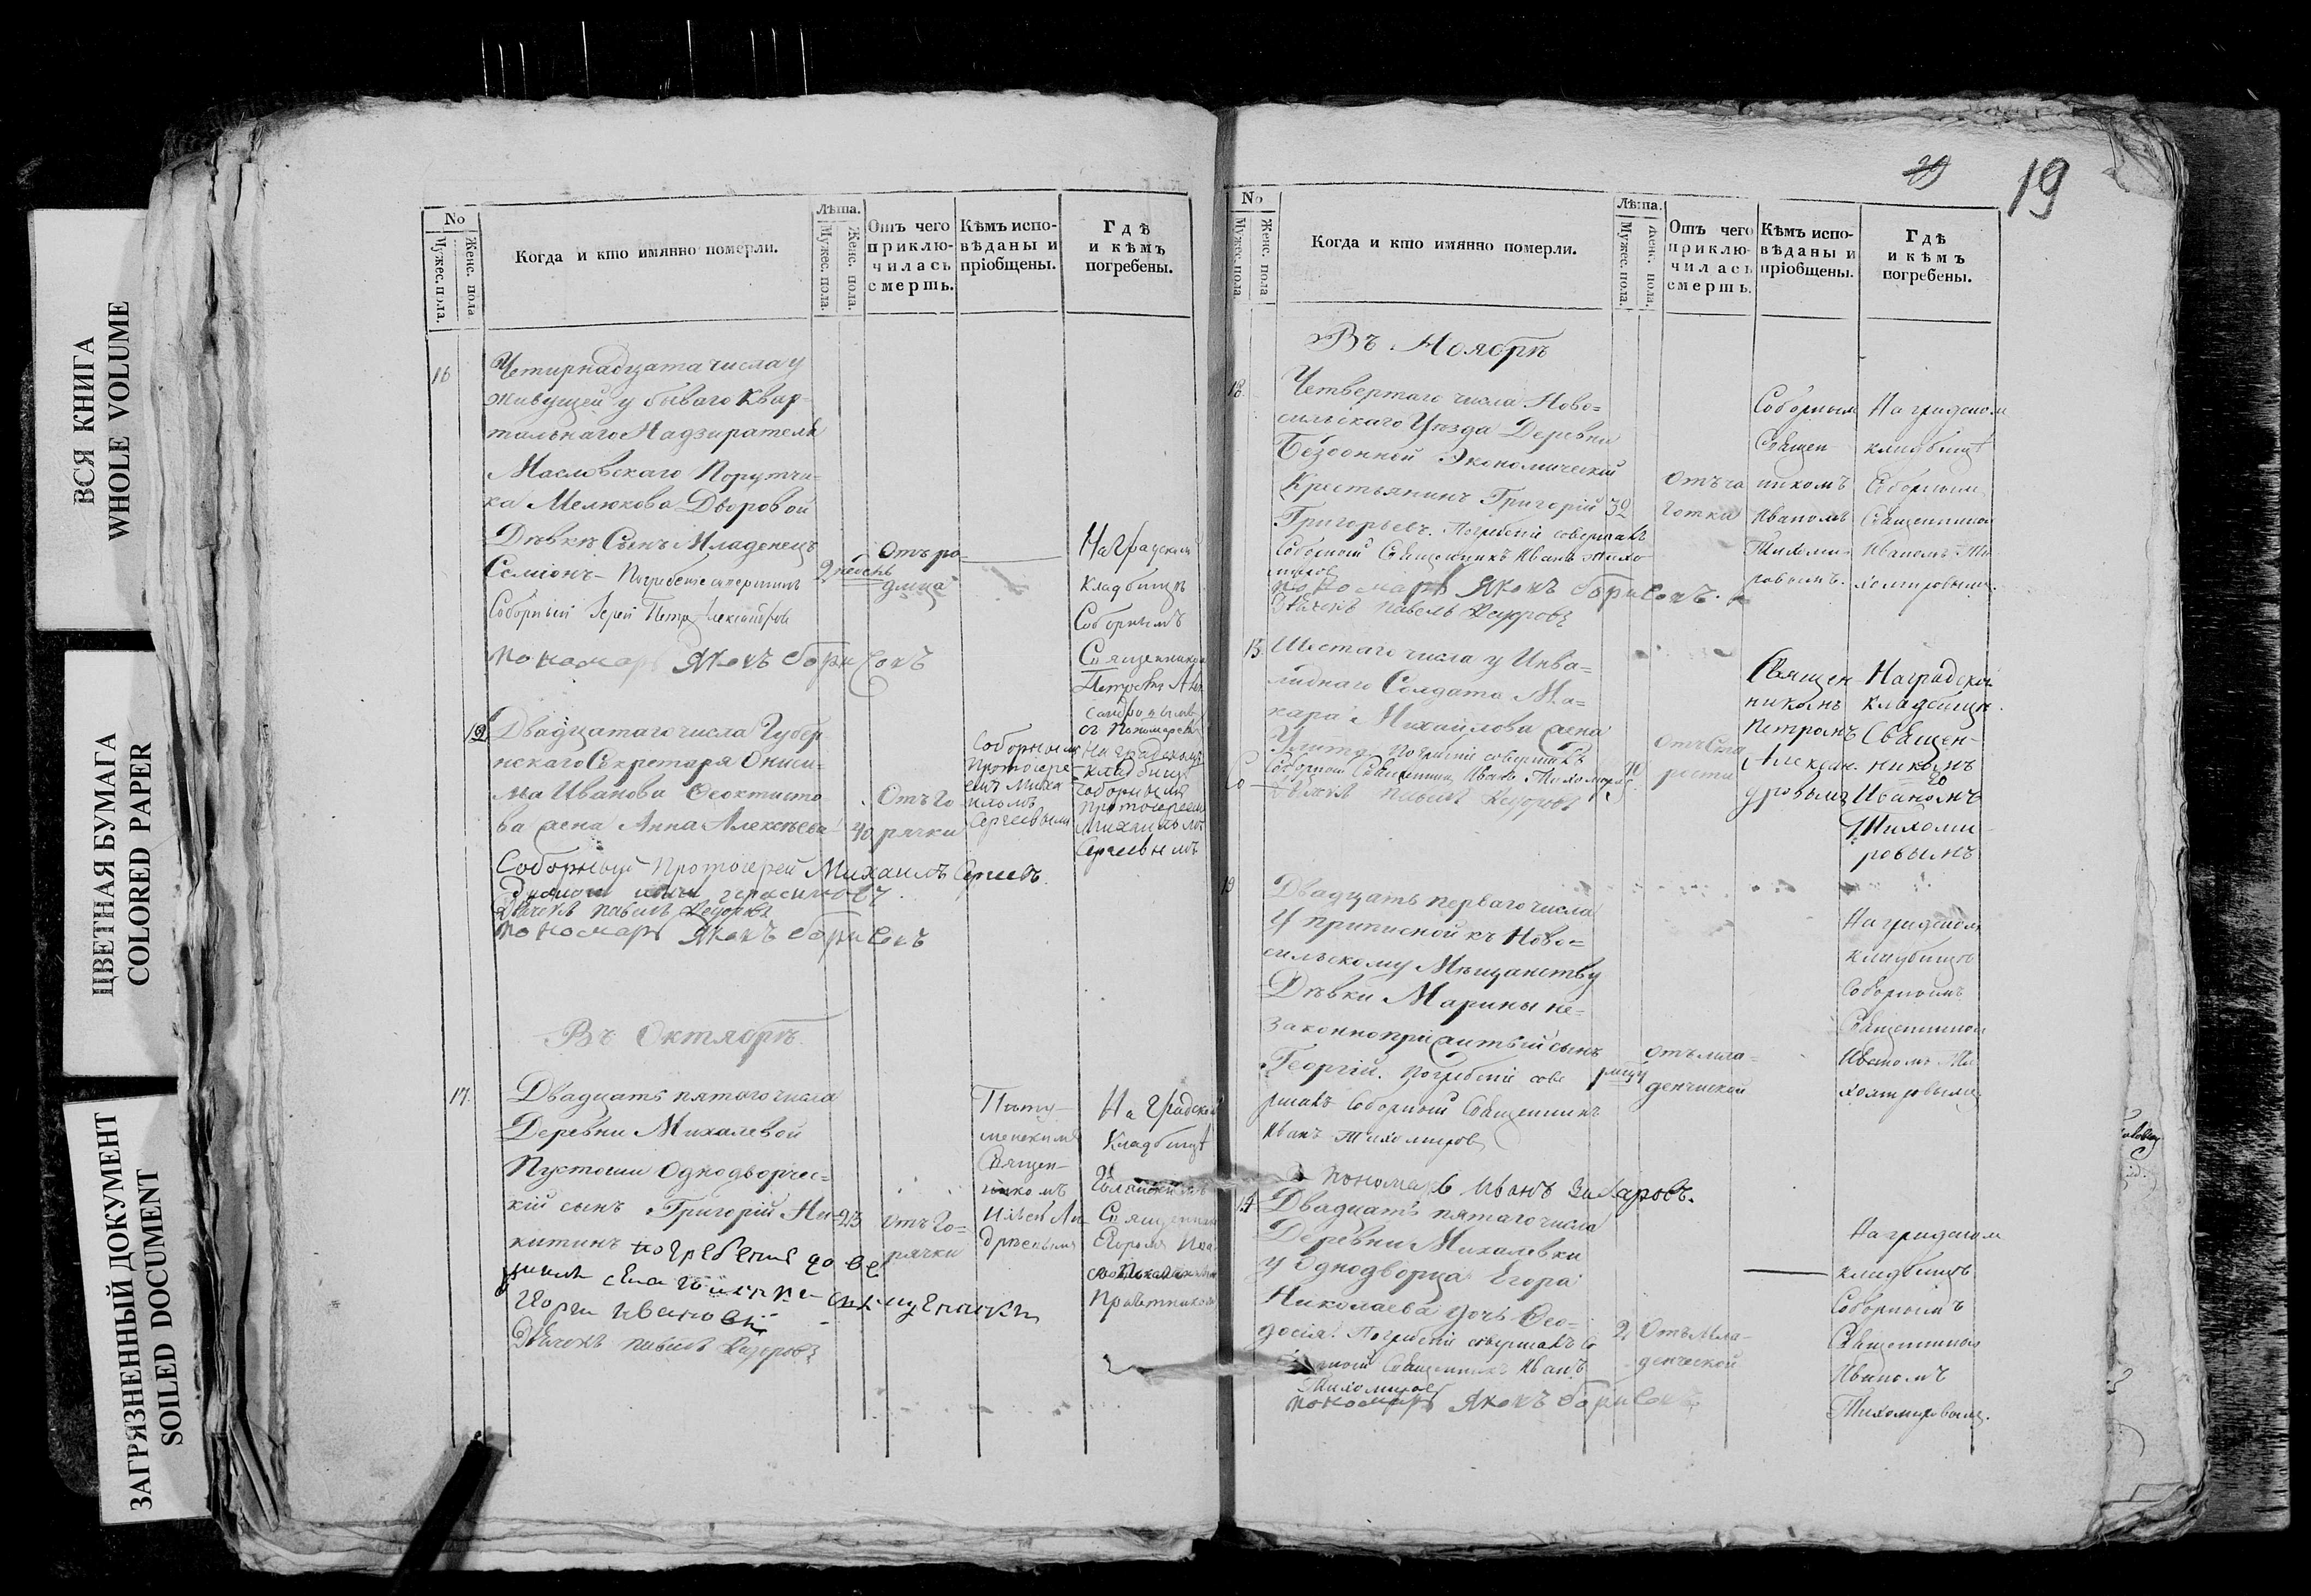 ВСЯ КНИГА
WHOLE VOLUME
ЦВЕТНАЯ БУМАГА
COLORED PAPER
ЗАГРЯЗНЕННЫЙ ДОКУМЕНТ
SOILED DOCUMENT
No
Мужес. пола.
Женс. пола
Когда и кто имянно померли.
Лѣта.
Мужес. пола.
Женс. пола.
Отъ чего
приклю-
чилась
смерть.
Кѣмъ испо-
вѣданы и
пріобщены.
Гдѣ
и кѣмъ
погребены.
16
Четирнадцата числа у
живущей у бываго Квар-
тальнаго Надзирателя
Масловскаго Порутчи-
ка Мелюкова Дворовой
Дѣвки Сынъ Младенецъ
Семіонъ - Погребеніе
Соборный Іерей Петръ Александровъ
пономарь Яковъ Борисовъ
Отъ ро-
димца
На Градском
Кладбищѣ
Соборнымъ
Священником
Петромъ Алек
сандровымъ
с Пономаремъ
12
Двадцатаго числа Губер-
нскаго Секретаря Ониси-
ма Иванова Феоктисто-
ва жена Анна Алексѣева
40
Отъ го-
рячки
Соборнымъ
Протоіере-
емъ Миха
иломъ
Сергеевымъ
На градскомъ
кладбищѣ
соборнымъ
протоіереем
Михаиломъ
Сергеевымъ
Соборный Протоіерей Михаилъ Сергеевъ
Дьячекъ Павелъ Федоровъ
пономарь Яковъ Борисовъ
Въ Октябрѣ
17.
Двадцать пятаго числа
Деревни Михалевой
Пустоши Однодворчес-
кій сынъ Григорій Ни-
китинъ погребение
23
Отъ го-
рячки
священникъ
Егоръ Ивановъ
Дьячекъ Павелъ Федоровъ
Священ-
никомъ
На Градском
Кладбищѣ
Священником
19
No
Мужес. пола
Женс. пола
Когда и кто имянно померли.
Лѣта.
Мужес. пола.
Женс. пола.
Отъ чего
приклю-
чилась
смерть.
Кѣмъ испо-
вѣданы и
пріобщены.
Гдѣ
и кѣмъ
погребены.
Въ Ноябрѣ
18.
Четвертаго числа Ново=
сильскаго Уѣзда Деревни
Бездонной Экономической
Крестьянинъ Григорій
Григорьевъ. Погребеніе совершалъ
Соборный Священникъ Иванъ Тихо
мировъ
пономарь Яковъ Борисовъ.
Дьячекъ Павелъ Федоровъ
39
Отъ ча
хотки
Соборным
Священ-
никомъ
Иваномъ
Тихоми-
ровымъ.
На градском
кладбищѣ
Соборным
Священником
Иваномъ Ти
хомировымъ.
13.
Шестаго числа у Инва-
лиднаго Солдата Ма-
кара Михайлова жена
Улита. Погребеніе совершалъ
Соборный Священникъ Иванъ Тихомиров
Дьячекъ Павелъ Федоровъ
Отъ ста
рости
Священ-
никомъ
Петромъ
Алексан.
дровымъ
На градском
кладбищѣ.
Священ-
никомъ
Иваномъ
Тихоми-
ровымъ
19
Двадцать перваго числа
У приписной къ Ново-
сильскому Мѣщанству
Дѣвки Марины не-
законноприжитый сынъ
Георгій. Погребеніе сове
ршалъ Соборный Священникъ
Иванъ Тихомировъ
Пономарь Иванъ Захаровъ.
Отъ мла-
денческой
На градском
кладбищѣ
Соборнымъ
Священником
Иваномъ Ти
хомировымъ
14
Двадцать пятаго числа
Деревни Михалевки
у Однодворца Егора
Николаева дочь Фео-
досія. Погребеніе совершалъ Со
борный Священникъ Иванъ
Тихомировъ
пономарь Яковъ Борисовъ
2
Отъ мла-
денческой
На градском
кладбищѣ
Соборнымъ
Священником
Иваномъ
Тихомировымъ.